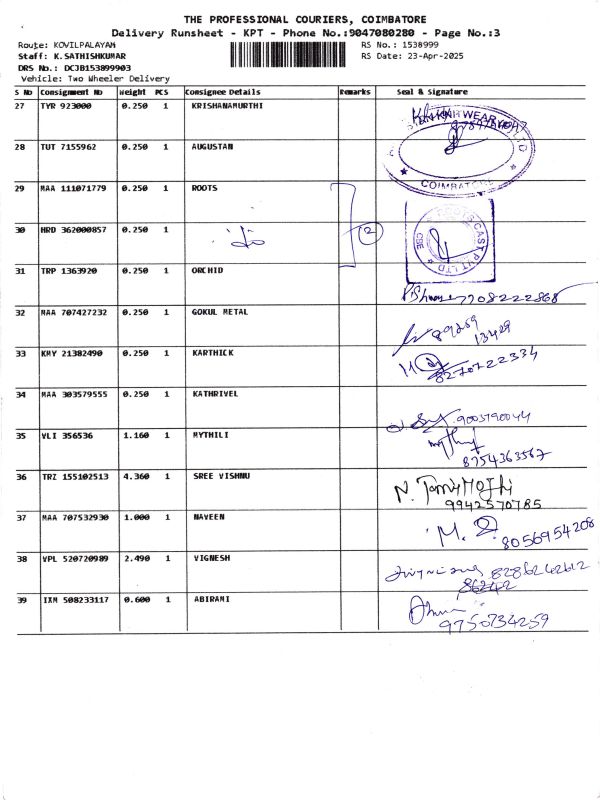 THE PROFESSIONAL COURIERS, COIMBATORE
Delivery Runsheet - KPT - Phone No.:9047080280 - Page No.:3
Route: KOVILPALAYAM RS No.: 1538999
Staff: K.SATHISHKUMAR RS Date: 23-Apr-2025
DRS No.: DCJB153899903
Vehicle: Two Wheeler Delivery
S No Consignment No Weight PCS Consignee Details Remarks Seal & Signature
27 TYR 923000 0.250 1 KRISHANAMURTHI
KNIT WEAR
COIMBATORE
28 TUT 7155962 0.250 1 AUGUSTAN
29 MAA 111071779 0.250 1 ROOTS
ROOTS CAST PVT LTD
CBE
30 HRD 362000857 0.250 1
2
31 TRP 1363920 0.250 1 ORCHID
7708222868
32 MAA 707427232 0.250 1 GOKUL METAL
89259
13429
33 KMY 21382490 0.250 1 KARTHICK
8270722334
34 MAA 303579555 0.250 1 KATHRIVEL
9003790044
35 VLI 356536 1.160 1 MYTHILI
8754363567
36 TRZ 155102513 4.360 1 SREE VISHNU
9942570785
37 MAA 707532930 1.000 1 NAVEEN
M. 8056954208
38 VPL 520720989 2.490 1 VIGNESH
39 IXM 508233117 0.600 1 ABIRAMI
9750734259